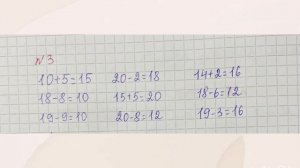 №3
10+5=15 20-2=18 14+2=16
18-8=10 15+5=20 18-6=12
19-9=10 20-8=12 19-3=16